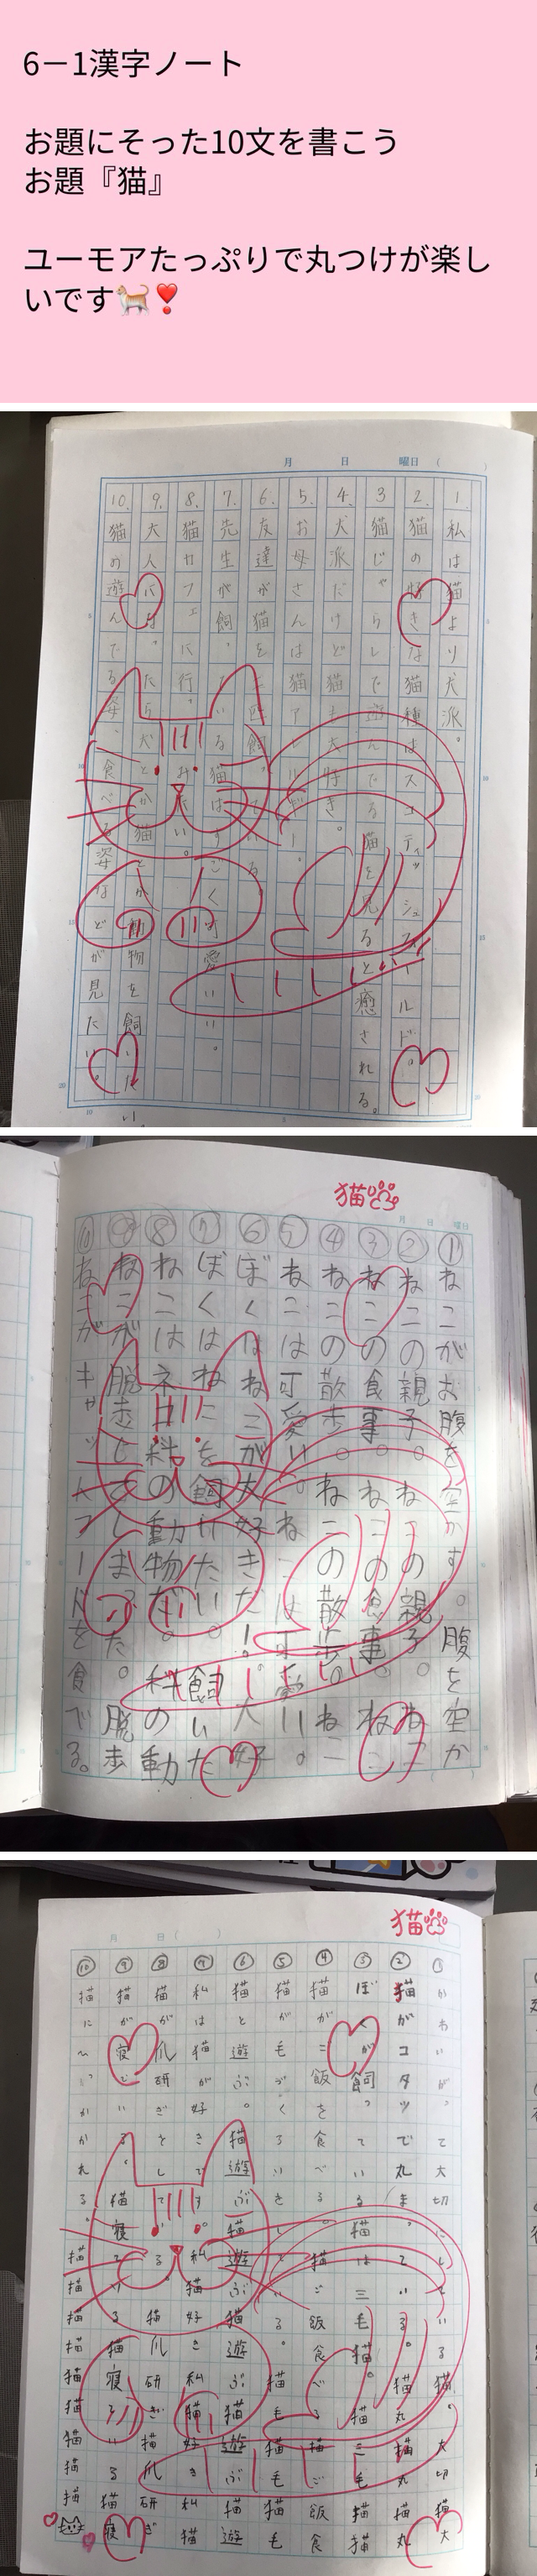 6－1漢字ノート
お題にそった10文を書こう
お題『猫』
ユーモアたっぷりで丸つけが楽し
いです🐈❣️
月 日 曜日（ ）
1. 私は猫より犬派。
2. 猫の好きな猫種はスコティッシュフォールド。
3 猫じゃらしで遊んでる猫を見ると癒される。
4. 犬派だけど猫も大好き。
5. お母さんは猫アレルギー。
6. 友達が猫を
7. 先生が飼っている猫はすごく可愛いい。
8. 猫カフェに行ってみたい。
9. 大人になったら犬とか猫とか動物を飼いたい
10. 猫の遊んでる姿、食べる姿などが見たい。
猫
月 日 曜日
① ねこがお腹を空かす。腹を空か
② ねこの親子。ねこの親子。ねこ
③ ねこの食事。ねこの食事。ねこ
④ ねこの散歩。ねこの散歩。ねこ
⑤ ねこは可愛い。ねこは可愛い。
⑥ ぼくはねこが大好きだ！大好
⑦ ぼくはねこを飼いたい。飼いた
⑧ ねこはネコ科の動物だ。科の動
⑨ ねこが脱走してしまった。脱歩
⑩ ねこがキャットフードを食でる。
猫
月 日（ ）
① かわいがって大切にしている猫。大切猫大
② 猫がコタツで丸まっている。猫丸猫丸猫丸
③ ぼくが飼っている猫は三毛猫。猫三毛猫猫
④ 猫がご飯を食べる。猫ご飯食べる猫ご飯食
⑤ 猫が毛づくろいをしている。猫毛猫毛猫毛
⑥ 猫と遊ぶ。猫遊ぶ猫遊ぶ猫遊ぶ猫遊ぶ猫遊
⑦ 私は猫が好きです。私猫好き私猫好き私猫
⑧ 猫が爪研ぎをしている。猫爪研ぎ猫爪研ぎ
⑨ 猫が寝ている。猫寝ている猫寝ている猫寝
⑩ 猫にひっかかれる。猫猫猫猫猫猫猫猫猫